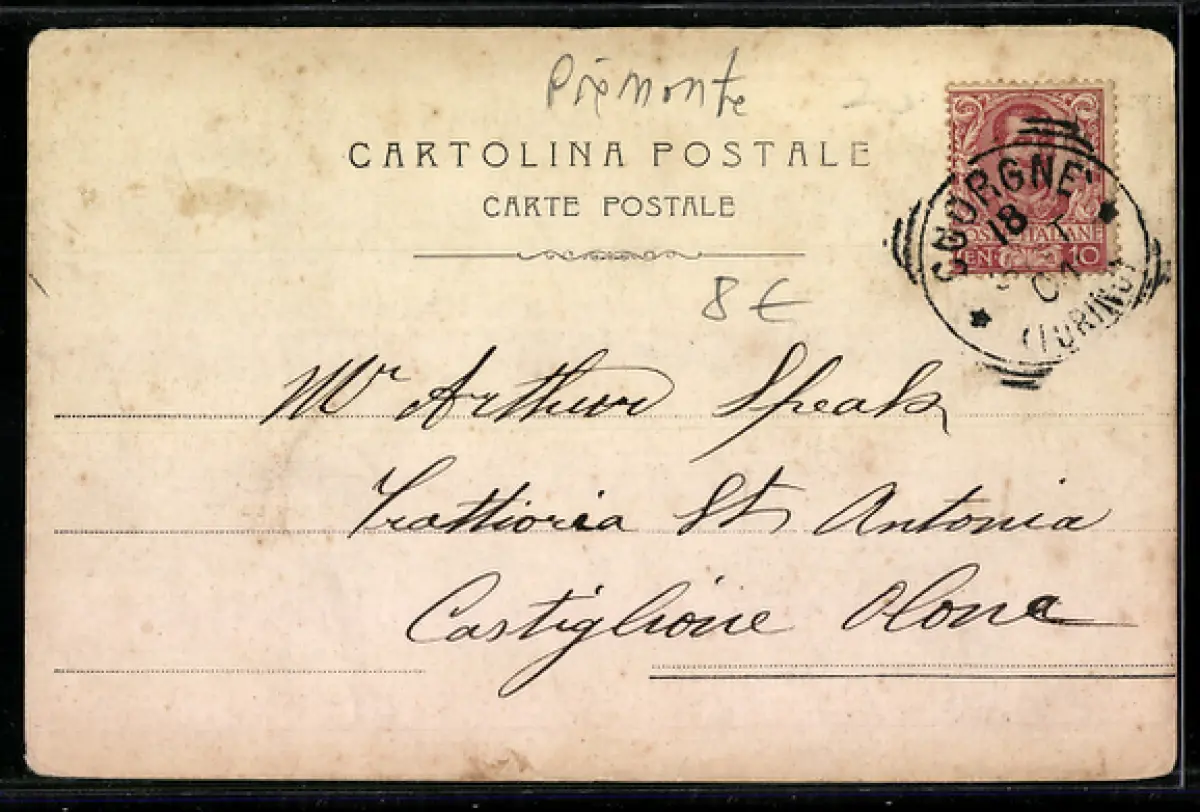 Piemonte
CARTOLINA POSTALE
CARTE POSTALE
POSTE ITALIANE
CEN 10
CUORGNE
18
04
(TORINO)
8 €
Mr Arthur Speak
Trattioria St Antonia
Castiglione Olona